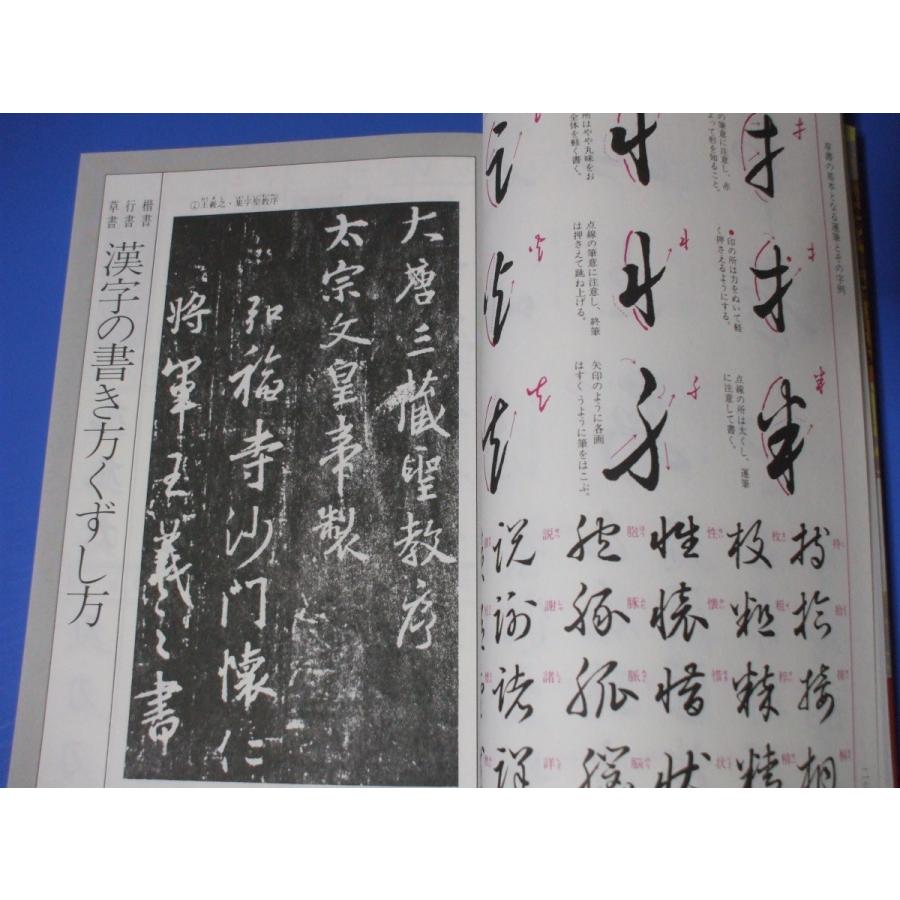 楷書
行書
草書
漢字の書き方くずし方
②王羲之・集字聖教序
大唐三蔵聖教序
太宗文皇帝製
弘福寺沙門懐仁
将軍王羲之書
草書の基本となる運筆とその字例
の筆意に注意し、赤
よって形を知ること。
所はやや丸味をお
全体を軽く書く。
●印の所は力をぬいて軽
く押さえるようにする。
点線の筆意に注意し、終筆
は押さえて跳ね上げる。
点線の所は太くし、運筆
に注意して書く。
矢印のように各画
はすくうように筆をはこぶ。
持 枚 性 胞 説
拾 粗 懐 豚 謝
接 粋 惜 脈 諸
状 脳 詳